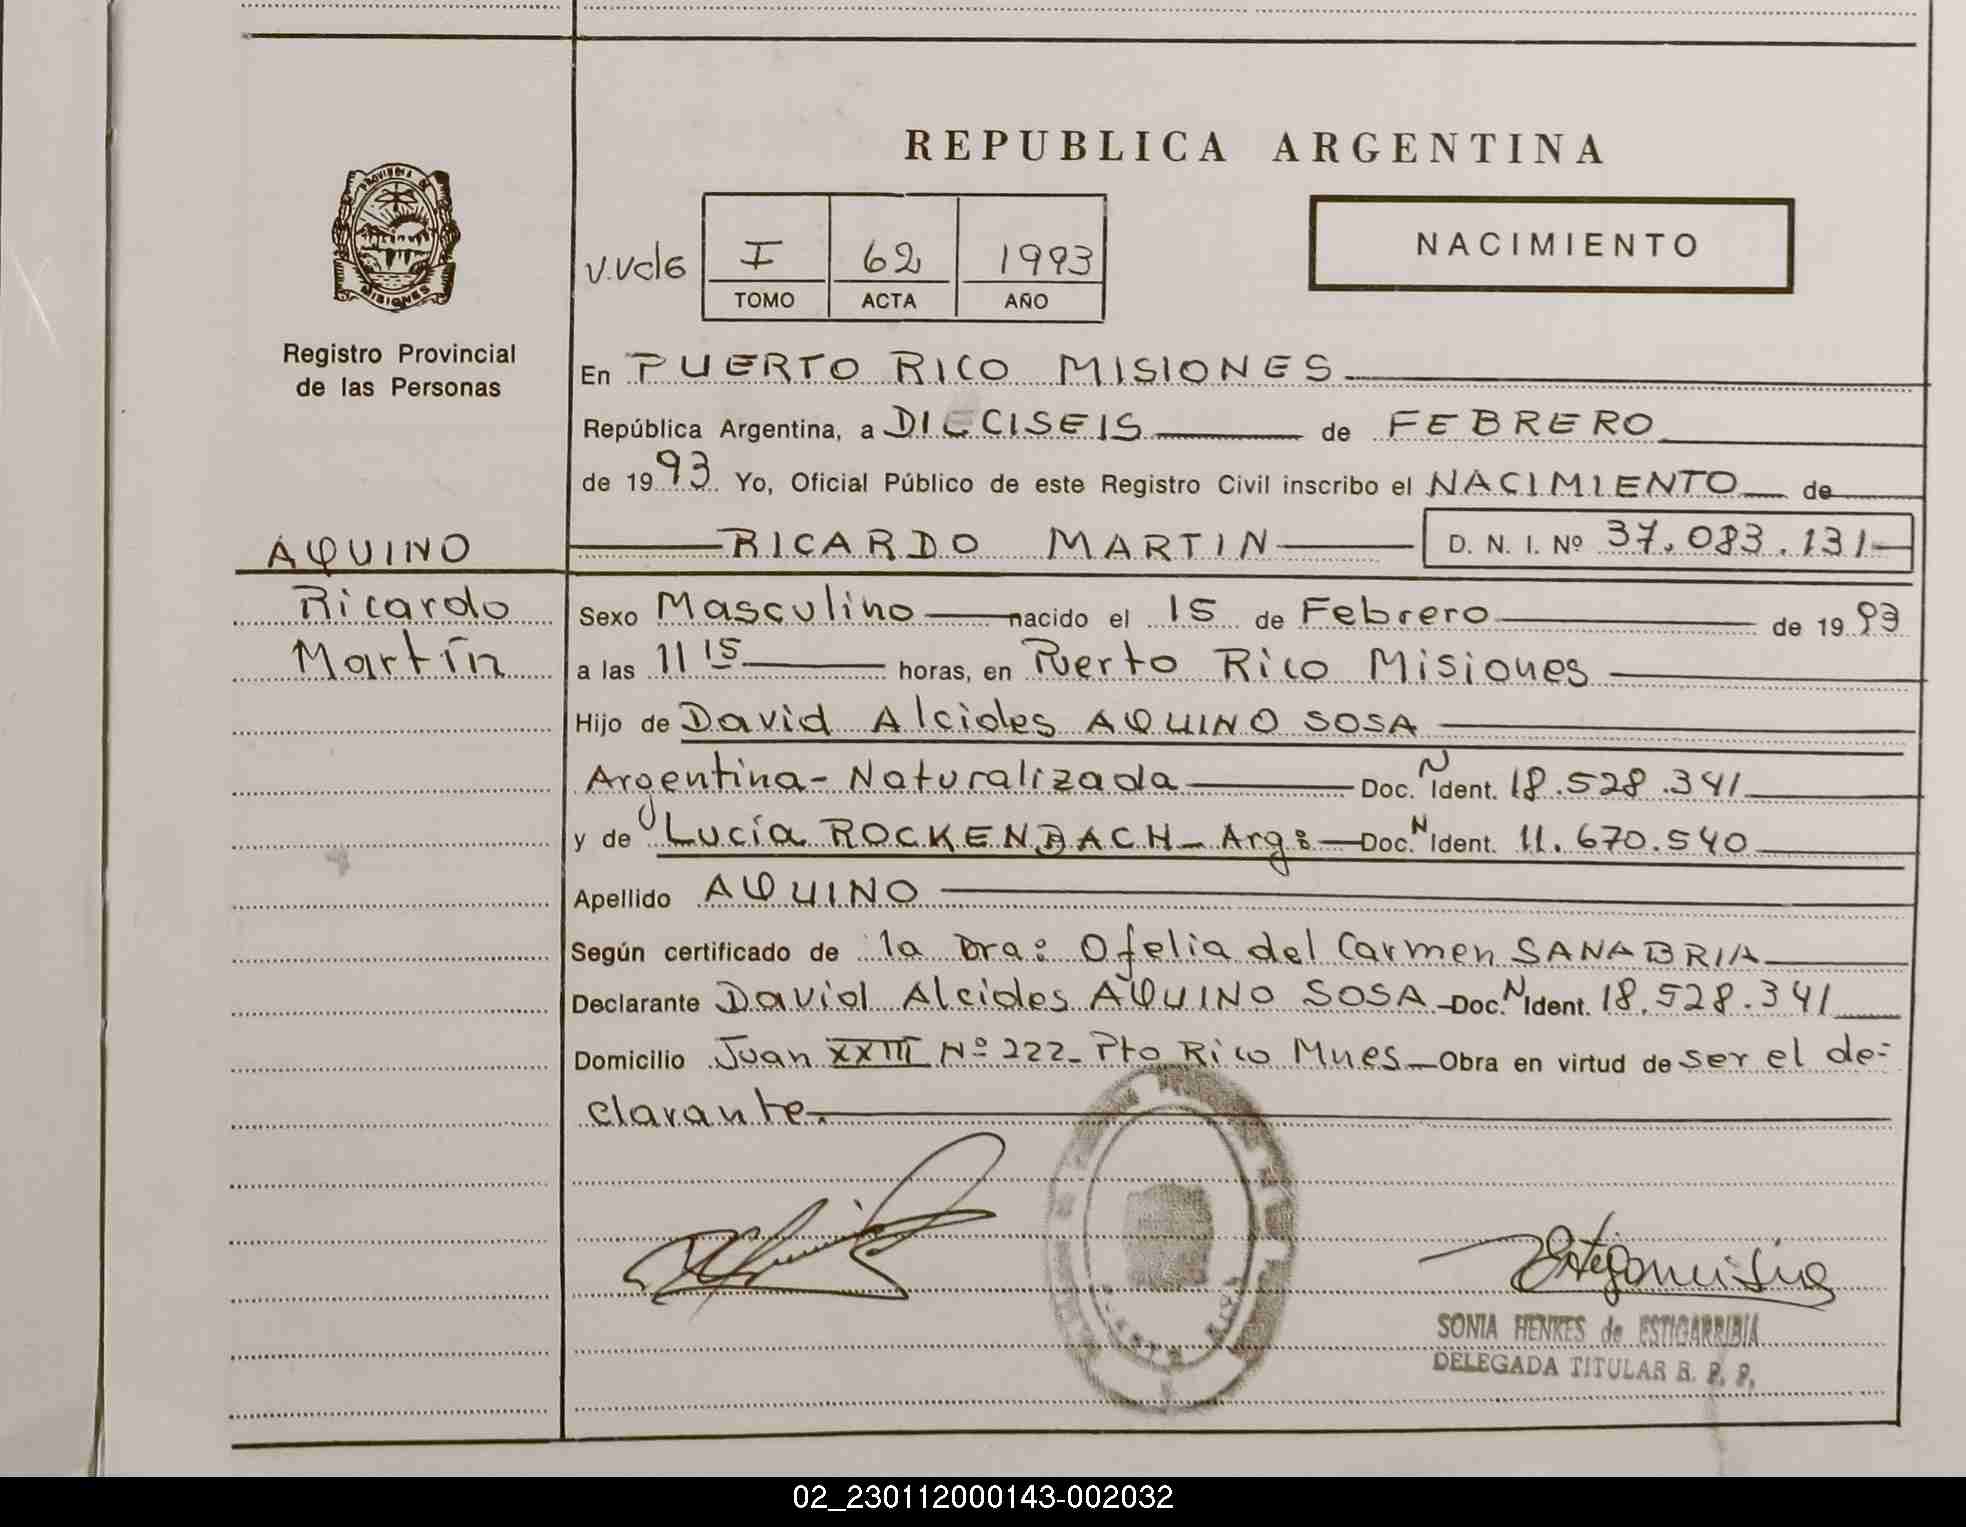 REPUBLICA ARGENTINA
PROVINCIA DE
MISIONES
Registro Provincial
de las Personas
V.Vdc
I 62 1993
TOMO ACTA AÑO
NACIMIENTO
En PUERTO RICO MISIONES
República Argentina, a DIECISEIS de FEBRERO
de 1993 Yo, Oficial Público de este Registro Civil inscribo el NACIMIENTO de
AQUINO
RICARDO MARTIN D. N. I. Nº 37.083.131
Ricardo
Martín
Sexo Masculino nacido el 15 de Febrero de 1993
a las 11 15 horas, en Puerto Rico Misiones
Hijo de David Alcides AQUINO SOSA
Argentina-Naturalizada Doc. N Ident. 18.528.341
y de Lucía ROCKENBACH - Arg: Doc. N Ident. 11.670.540
Apellido AQUINO
Según certificado de la Dra: Ofelia del Carmen SANABRIA
Declarante David Alcides AQUINO SOSA - Doc. N Ident. 18.528.341
Domicilio Juan XXIII Nº 222- Pto Rico Mnes - Obra en virtud de ser el de-
clarante.
SONIA HENKES de ESTIGARRIBIA
DELEGADA TITULAR R. P. P.
02_230112000143-002032